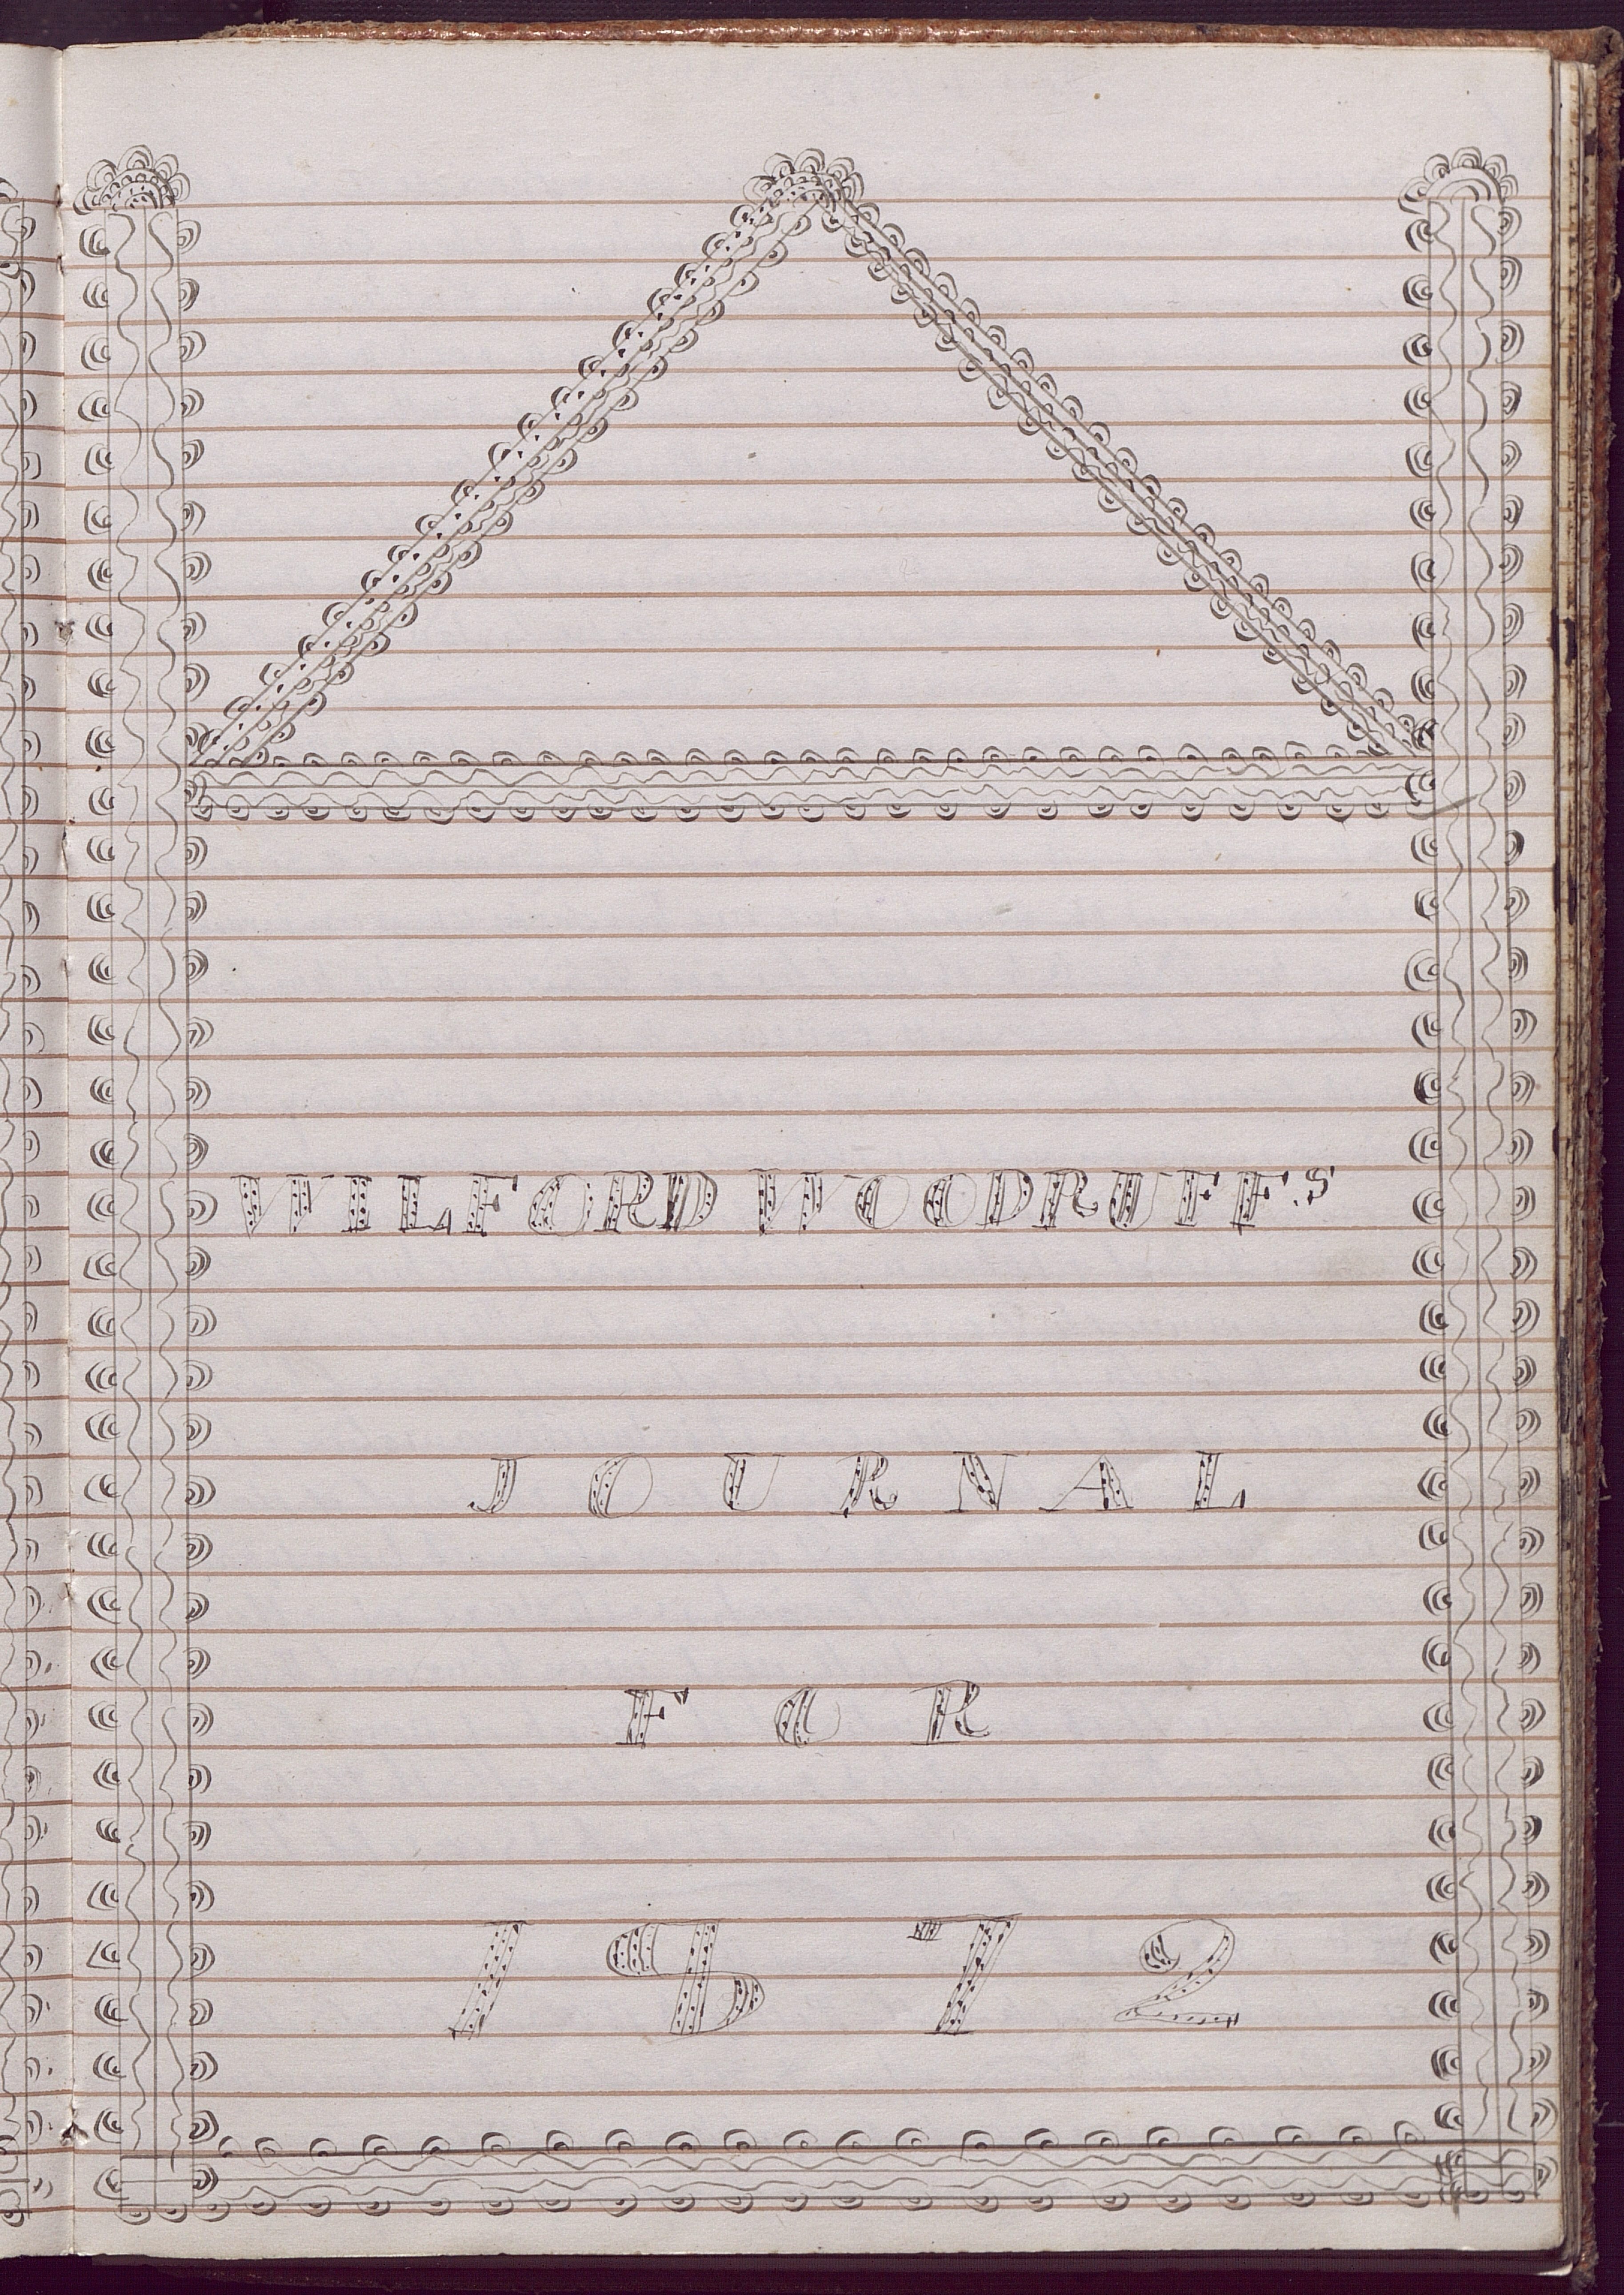 WILFORD WOODRUFF'S
JOURNAL
FOR
1872